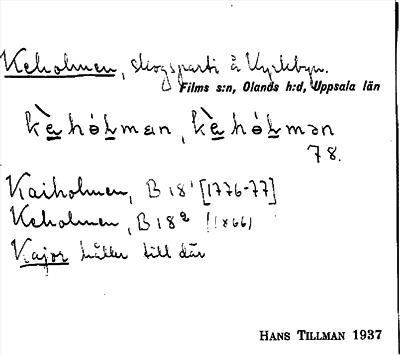 Keholmen, skogsparti å Kyrkbyn.
Films s:n, Olands h:d, Uppsala län
kè̱hólman, kè̱hólmən
78.
Kaiholmen, B 18¹ [1776-77]
Keholmen, B 18² (1866)
Kajor håller till där
HANS TILLMAN 1937